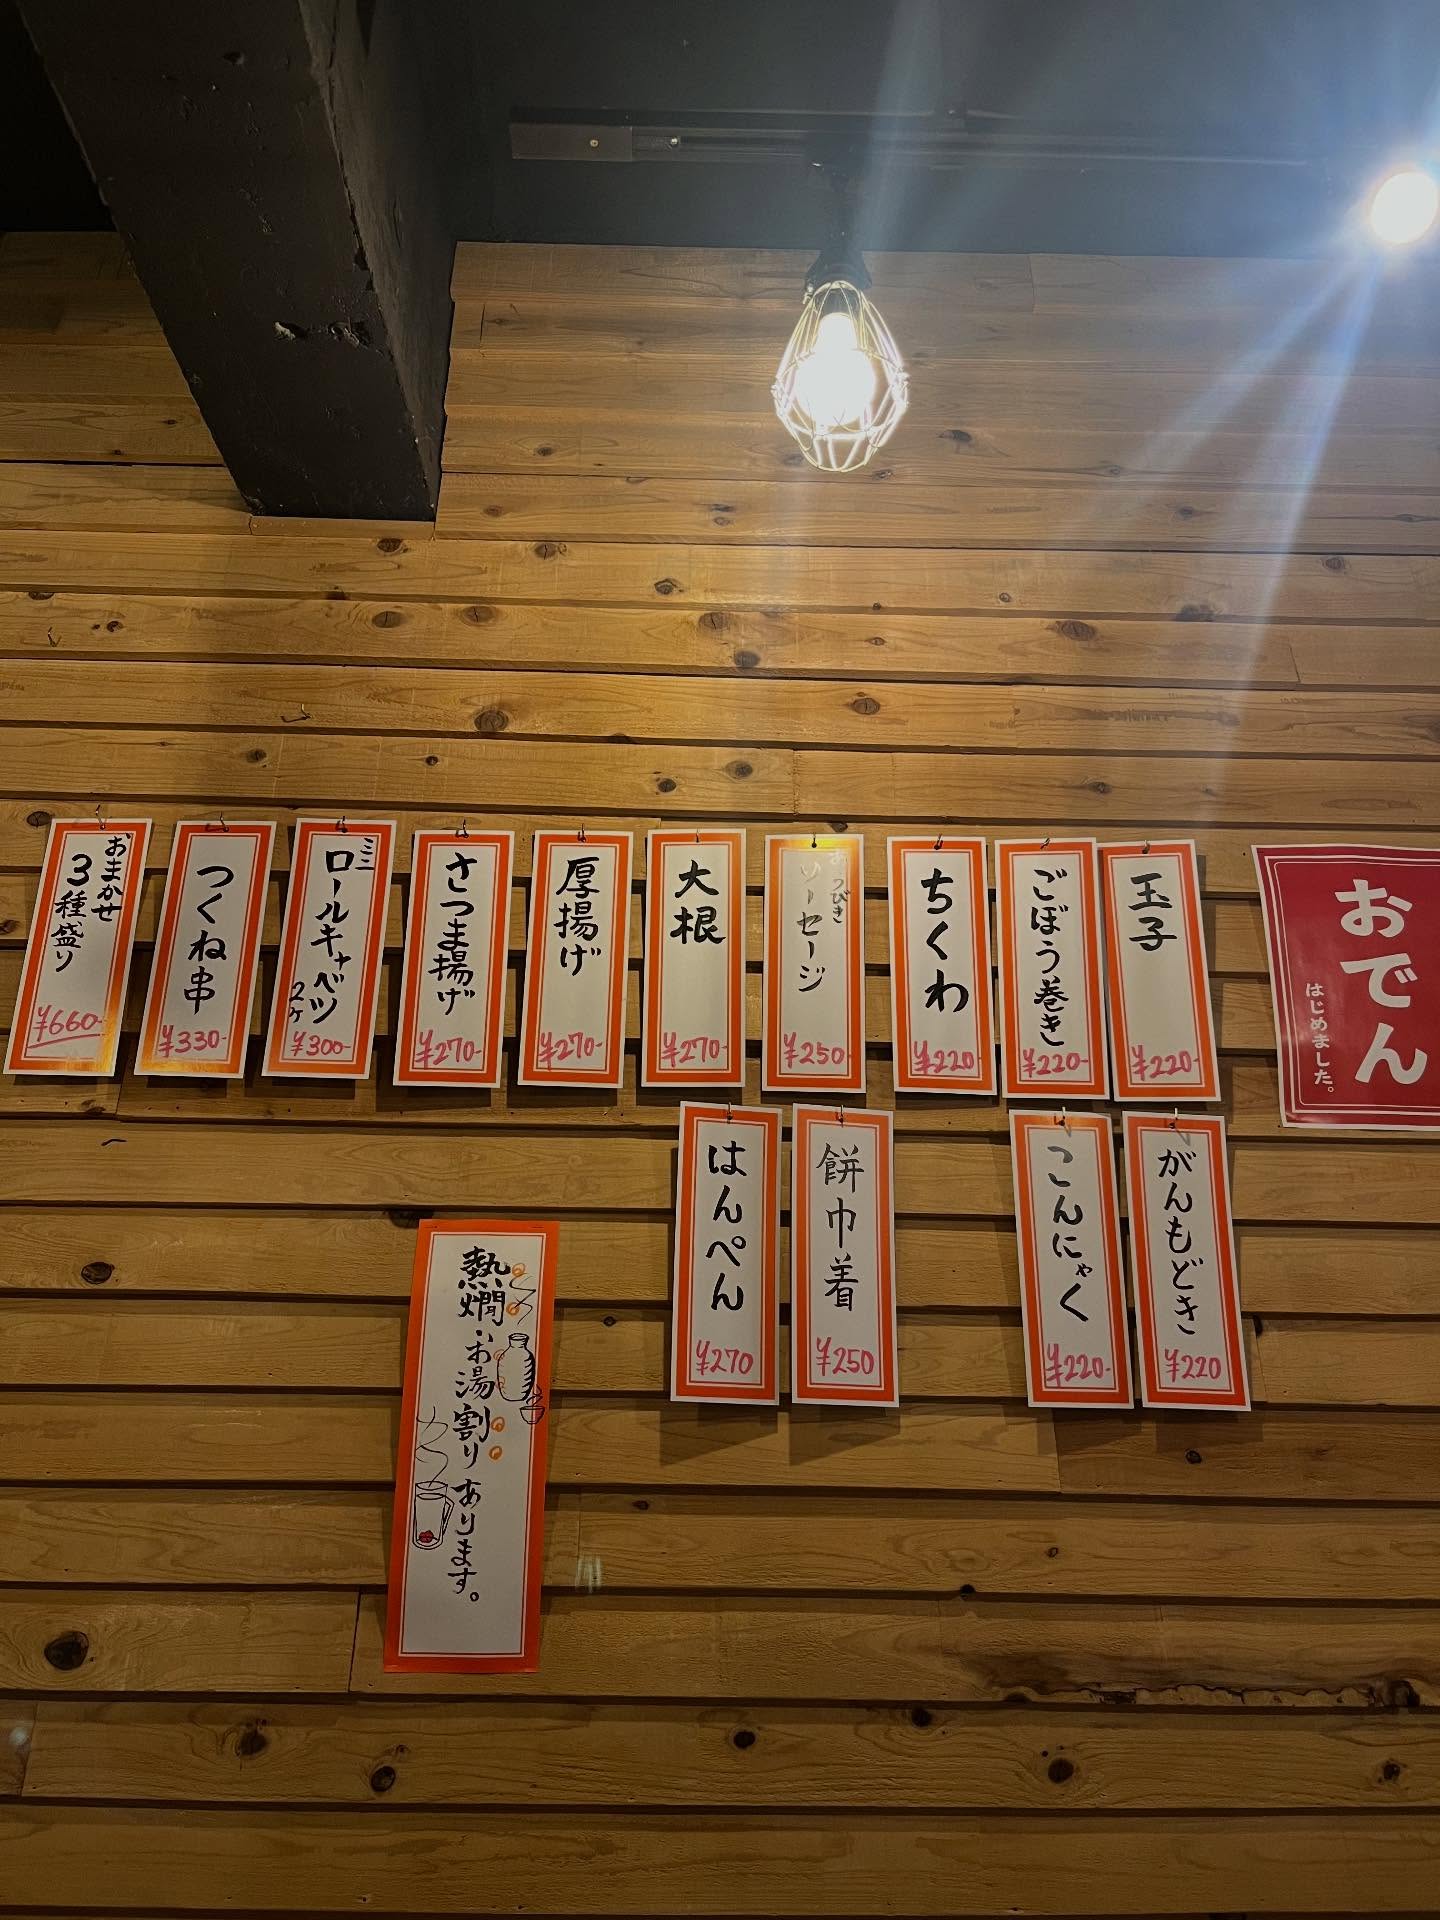 おでん
はじめました。
玉子
¥220-
ごぼう巻き
¥220-
ちくわ
¥220-
あらびき
ソーセージ
¥250
大根
¥270-
厚揚げ
¥270-
さつま揚げ
¥270-
ミニ
ロールキャベツ
2ヶ
¥300-
つくね串
¥330-
おまかせ
3種盛り
¥660-
がんもどき
¥220
こんにゃく
¥220-
餅巾着
¥250
はんぺん
¥270
熱燗、お湯割りあります。